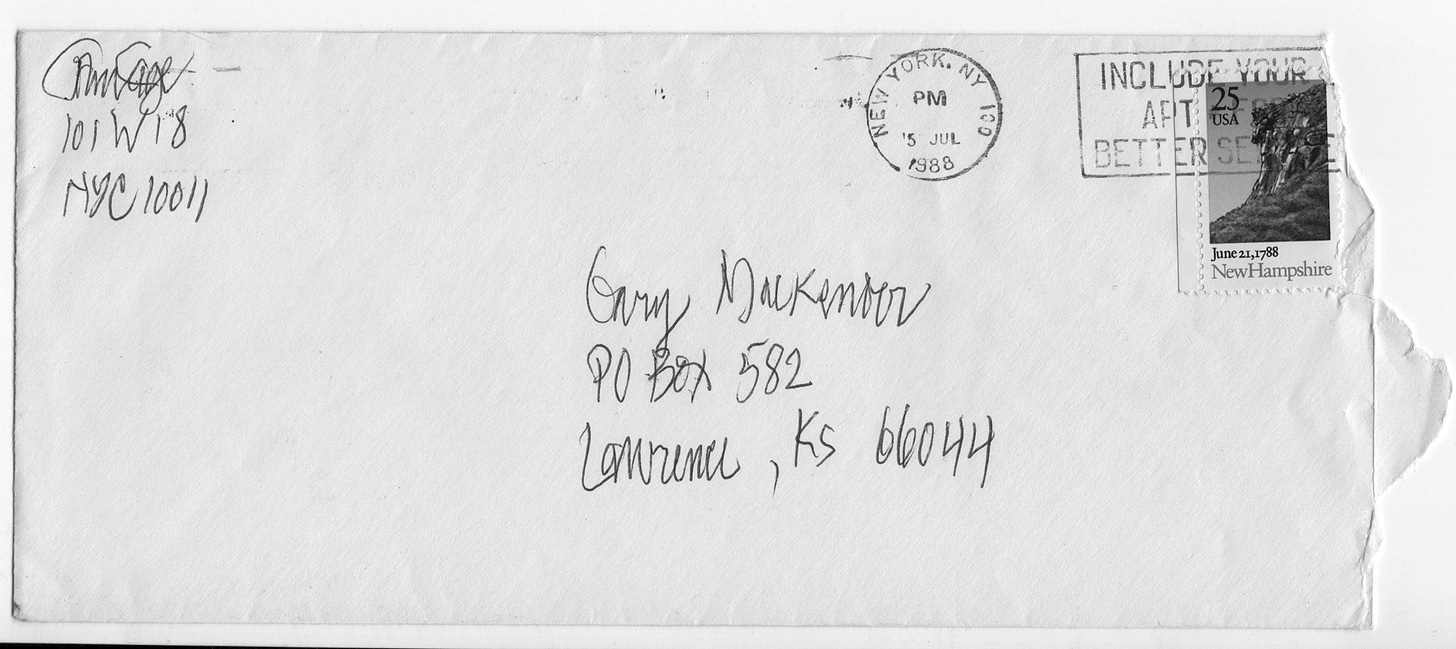 John Cage
101 W 18
NYC 10011
NEW YORK, NY 100
PM
15 JUL
1988
INCLUDE YOUR
APT
BETTER SERVICE
25
USA
June 21, 1788
New Hampshire
Gary Mackender
PO Box 582
Lawrence, Ks 66044